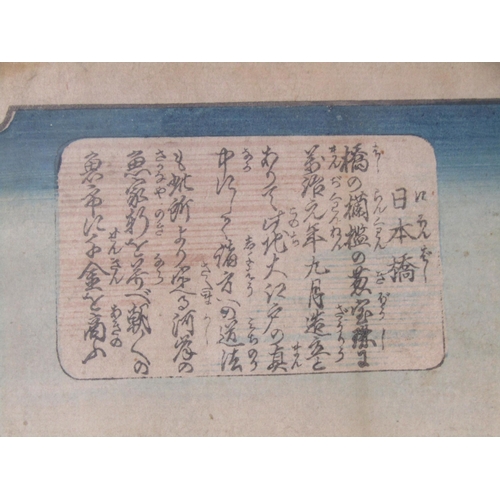 日本橋
橋の欄檻の葱宝珠に
萬治元年九月造立と
ありて此地大江戸の真
中にして諸方への道法
も此所より定る河岸の
魚家軒を并べ朝〱の
魚市に千金を商ふ